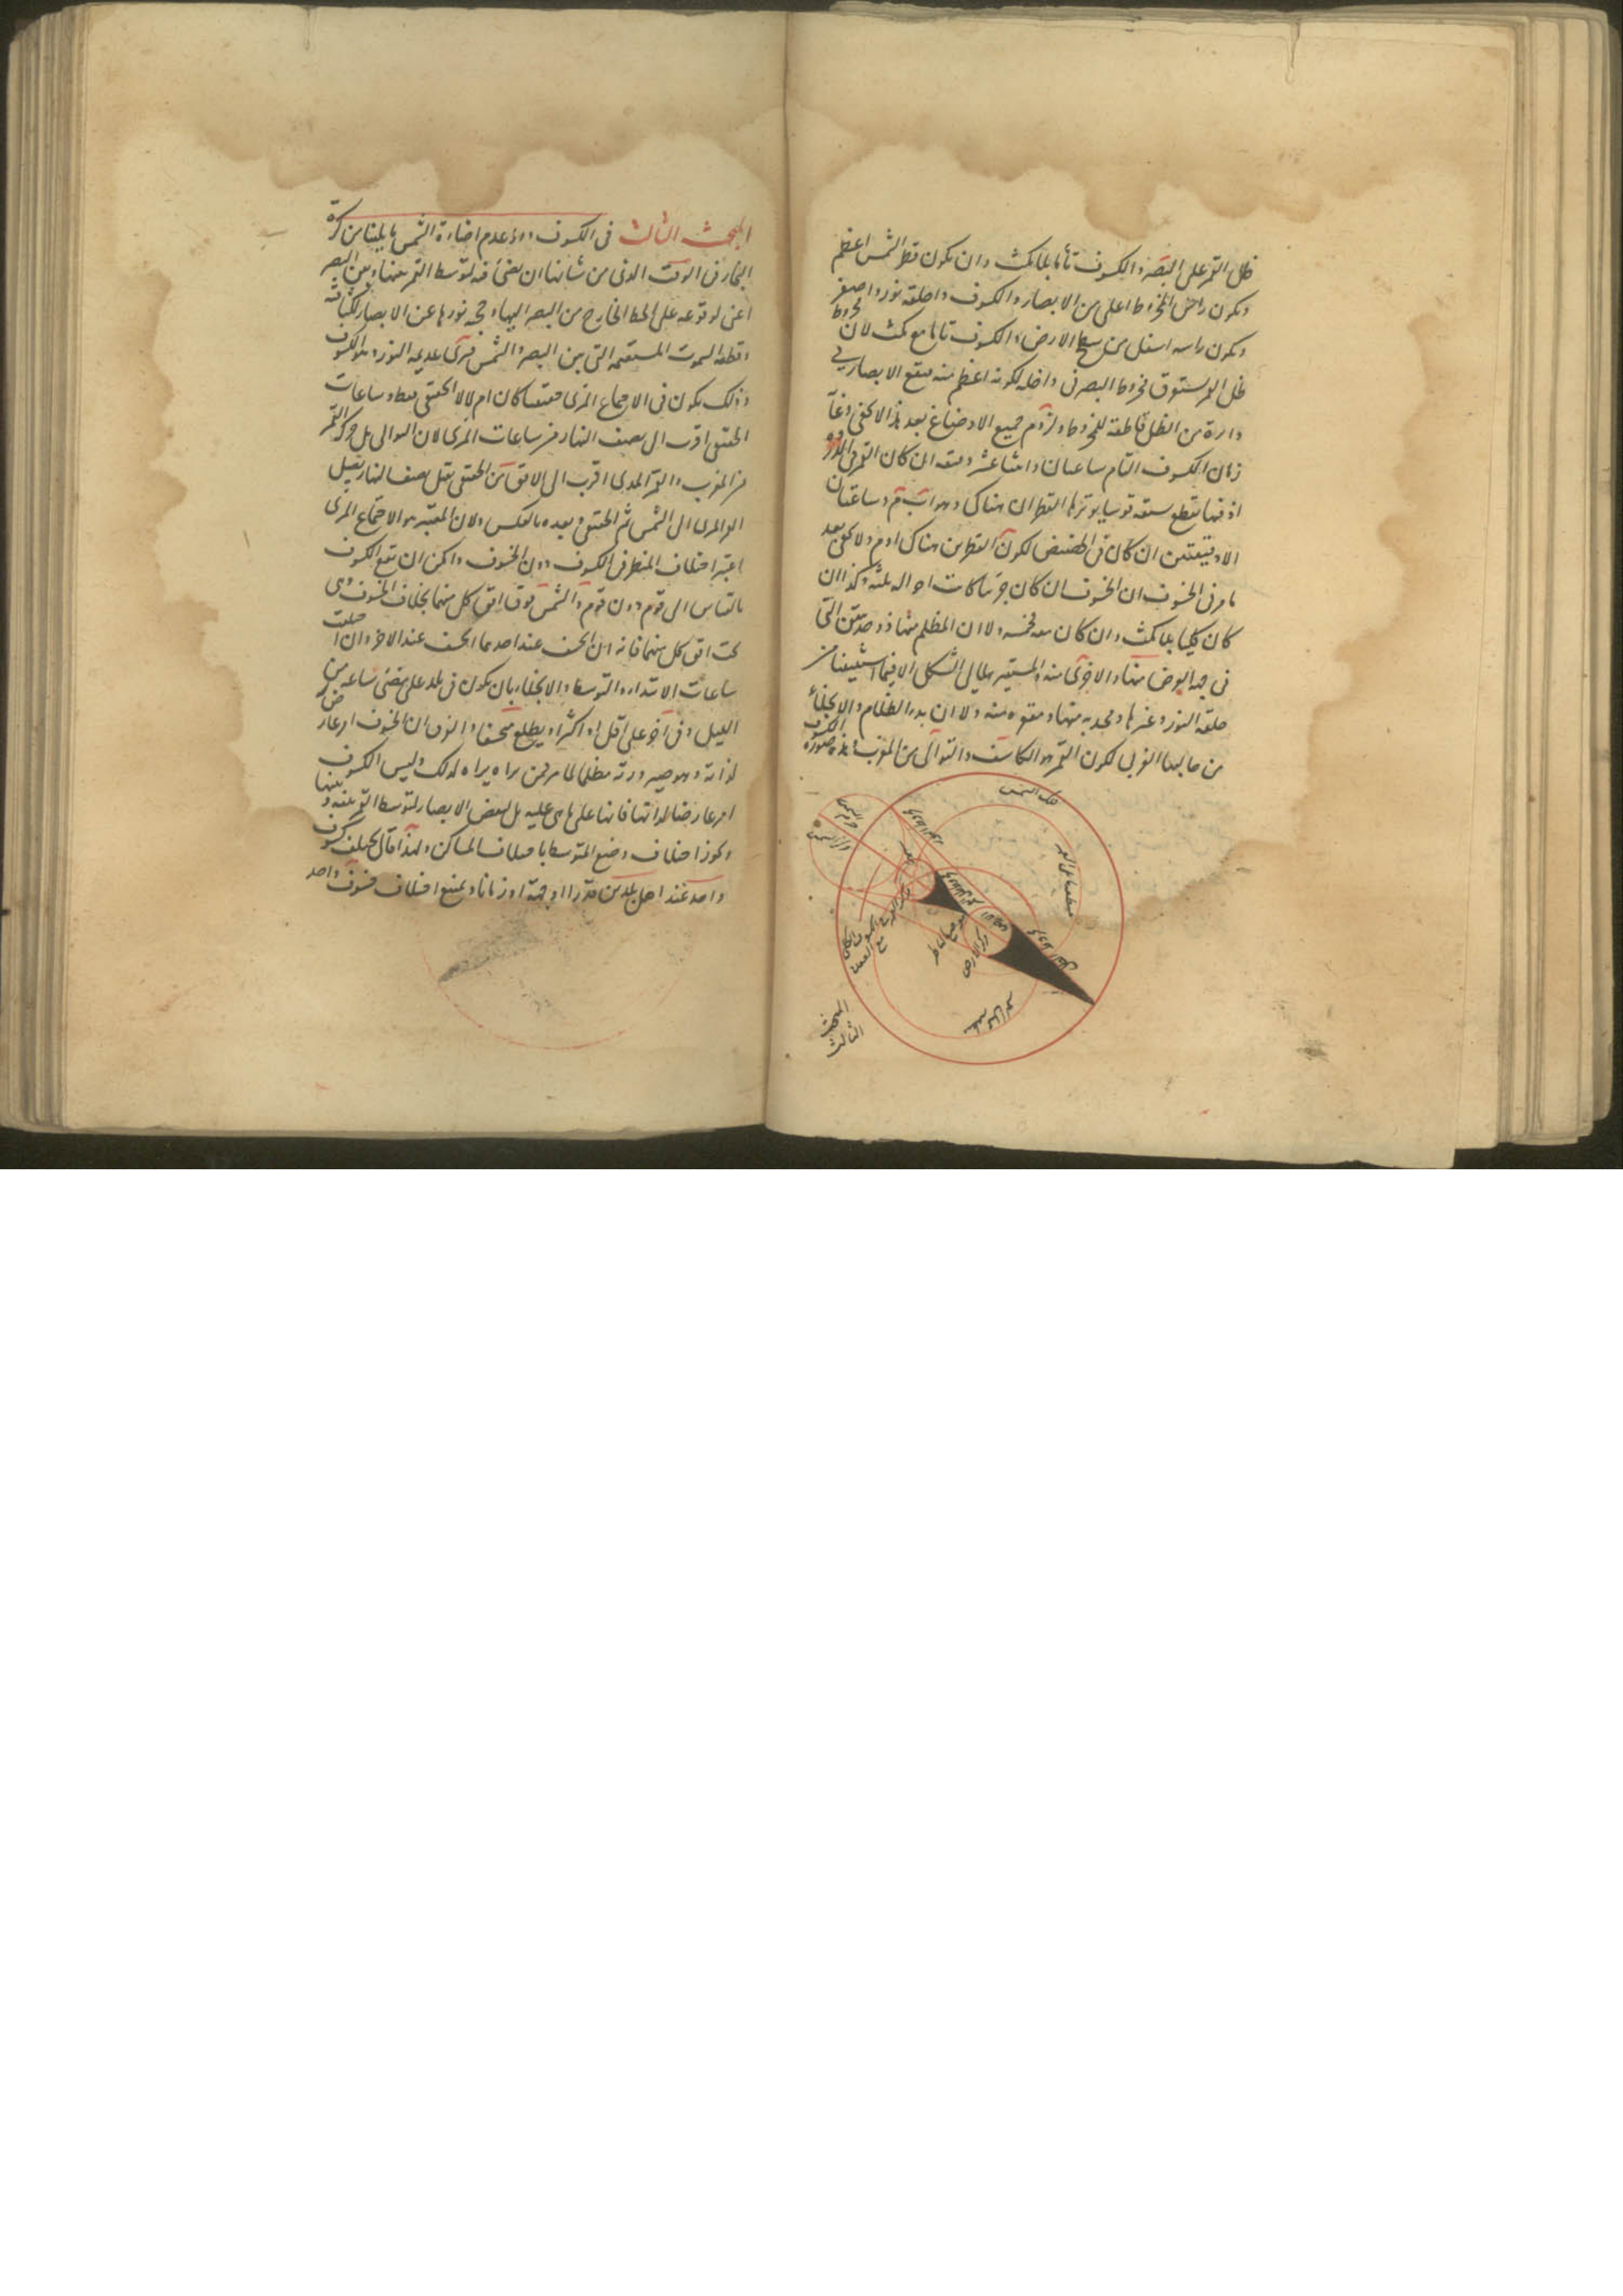 ظل القمر على البصر والكسوف تاما بلا مكث وان يكون قطر الشمس اعظم
ويكون راس المخروط اعلى من الابصار والكسوف ذا حلقة نور واصغر
ويكون راسه اسفل من سطح الارض والكسوف تاما مع مكث لان مخروط
ظل القمر مخروط البصر في داخله لكونه اعظم منه فيقع الابصار في
دايرة من الظل قاطعة للمخروط ولزوم جميع الاوضاع بعد هذا لا يخفى وغاية
زمان الكسوف التام ساعتان واثنا عشر دقيقة ان كان القمر في الذروة
اذ فيها يقطع ستة قوسا يوترها القطران هناك وهو اب م وساعتان
الا دقيقتين ان كان في الحضيض لكون القطرين هناك ا وم ولا يخفى بعد
ما مر في الخسوف ان الخسوف ان كان جزئيا كانت احواله ثلثة وكذا ان
كان كليا بلا مكث وان كان معه فخمسة ولا ان المظلم منها ذو حدبتين التي
في جهة العرض منها والاخرى منه المستنير هلالي الشكل الا فيما استثنينا من
حلقة النور وغيرها ومحدبه منها ومقعره منه ولا ان بدء الظلام والانجلاء
من جانبها الغربي لكون القمر هو الكاسف والتوالي من المغرب وهذه صورة الكسوف
فلك الشمس
مركز الشمس
مركز الارض
المبحث
الثالث
المبحث الثالث في الكسوف وهو عدم اضاءة الشمس ما يلينا من كرة
البخار في الوقت الذي من شانها ان تضئ فيه لتوسط القمر بينها وبين البصر
اعني لوقوعه على الخط الخارج من البصر اليها وحجبه نورها عن الابصار لكثافته
وقطعه السموت المستقيمة التي بين البصر والشمس فترى عديمة النور وهو الكسوف
وذلك يكون في الاجتماع المرئي حقيقيا كان ام لا لا الحقيقي فقط وساعات
الحقيقي اقرب الى نصف النهار من ساعات المرئي لان التوالي بل حركة القمر
من المغرب والقمر المرئي اقرب الى الافق من الحقيقي فقبل نصف النهار يصل
القمر المرئي الى الشمس ثم الحقيقي وبعده بالعكس ولان المعتبر هو الاجتماع المرئي
اعتبر اختلاف المنظر في الكسوف دون الخسوف وامكن ان يقع الكسوف
بالقياس الى قوم دون قوم والشمس فوق افق كل منهما بخلاف الخسوف وهي
تحت افق كل منهما فانه ان انخسف عند احدهما انخسف عند الاخر وان اختلفت
ساعات الابتداء والتوسط والانجلاء بان يكون في بلد على مضي ساعة من
الليل وفي اخر على اقل او اكثر او يطلع منخسفا والفرق ان الخسوف امر عارض
لذاته وهو صيرورته مظلما لما مر فمن يراه يراه لذلك وليس الكسوف
امر عارضا لذاتها فانها على ما هي عليه بل لبعض الابصار لتوسط القمر بينه وبينها
ويجوز اختلاف وضع المتوسط باختلاف المساكن ولهذا قال يختلف كسوف
واحد عند اهل بلدين قدرا او جهة او زمانا ويمتنع اختلاف خسوف واحد